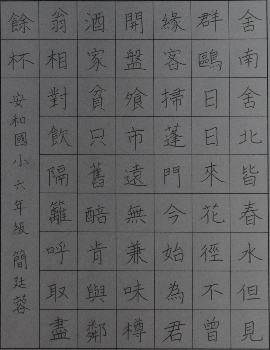 舍南舍北皆春水但見
群鷗日日來花徑不曾
緣客掃蓬門今始為君
開盤飧市遠無兼味樽
酒家貧只舊醅肯與鄰
翁相對飲隔籬呼取盡
餘杯 安和國小六年級 簡廷蓉